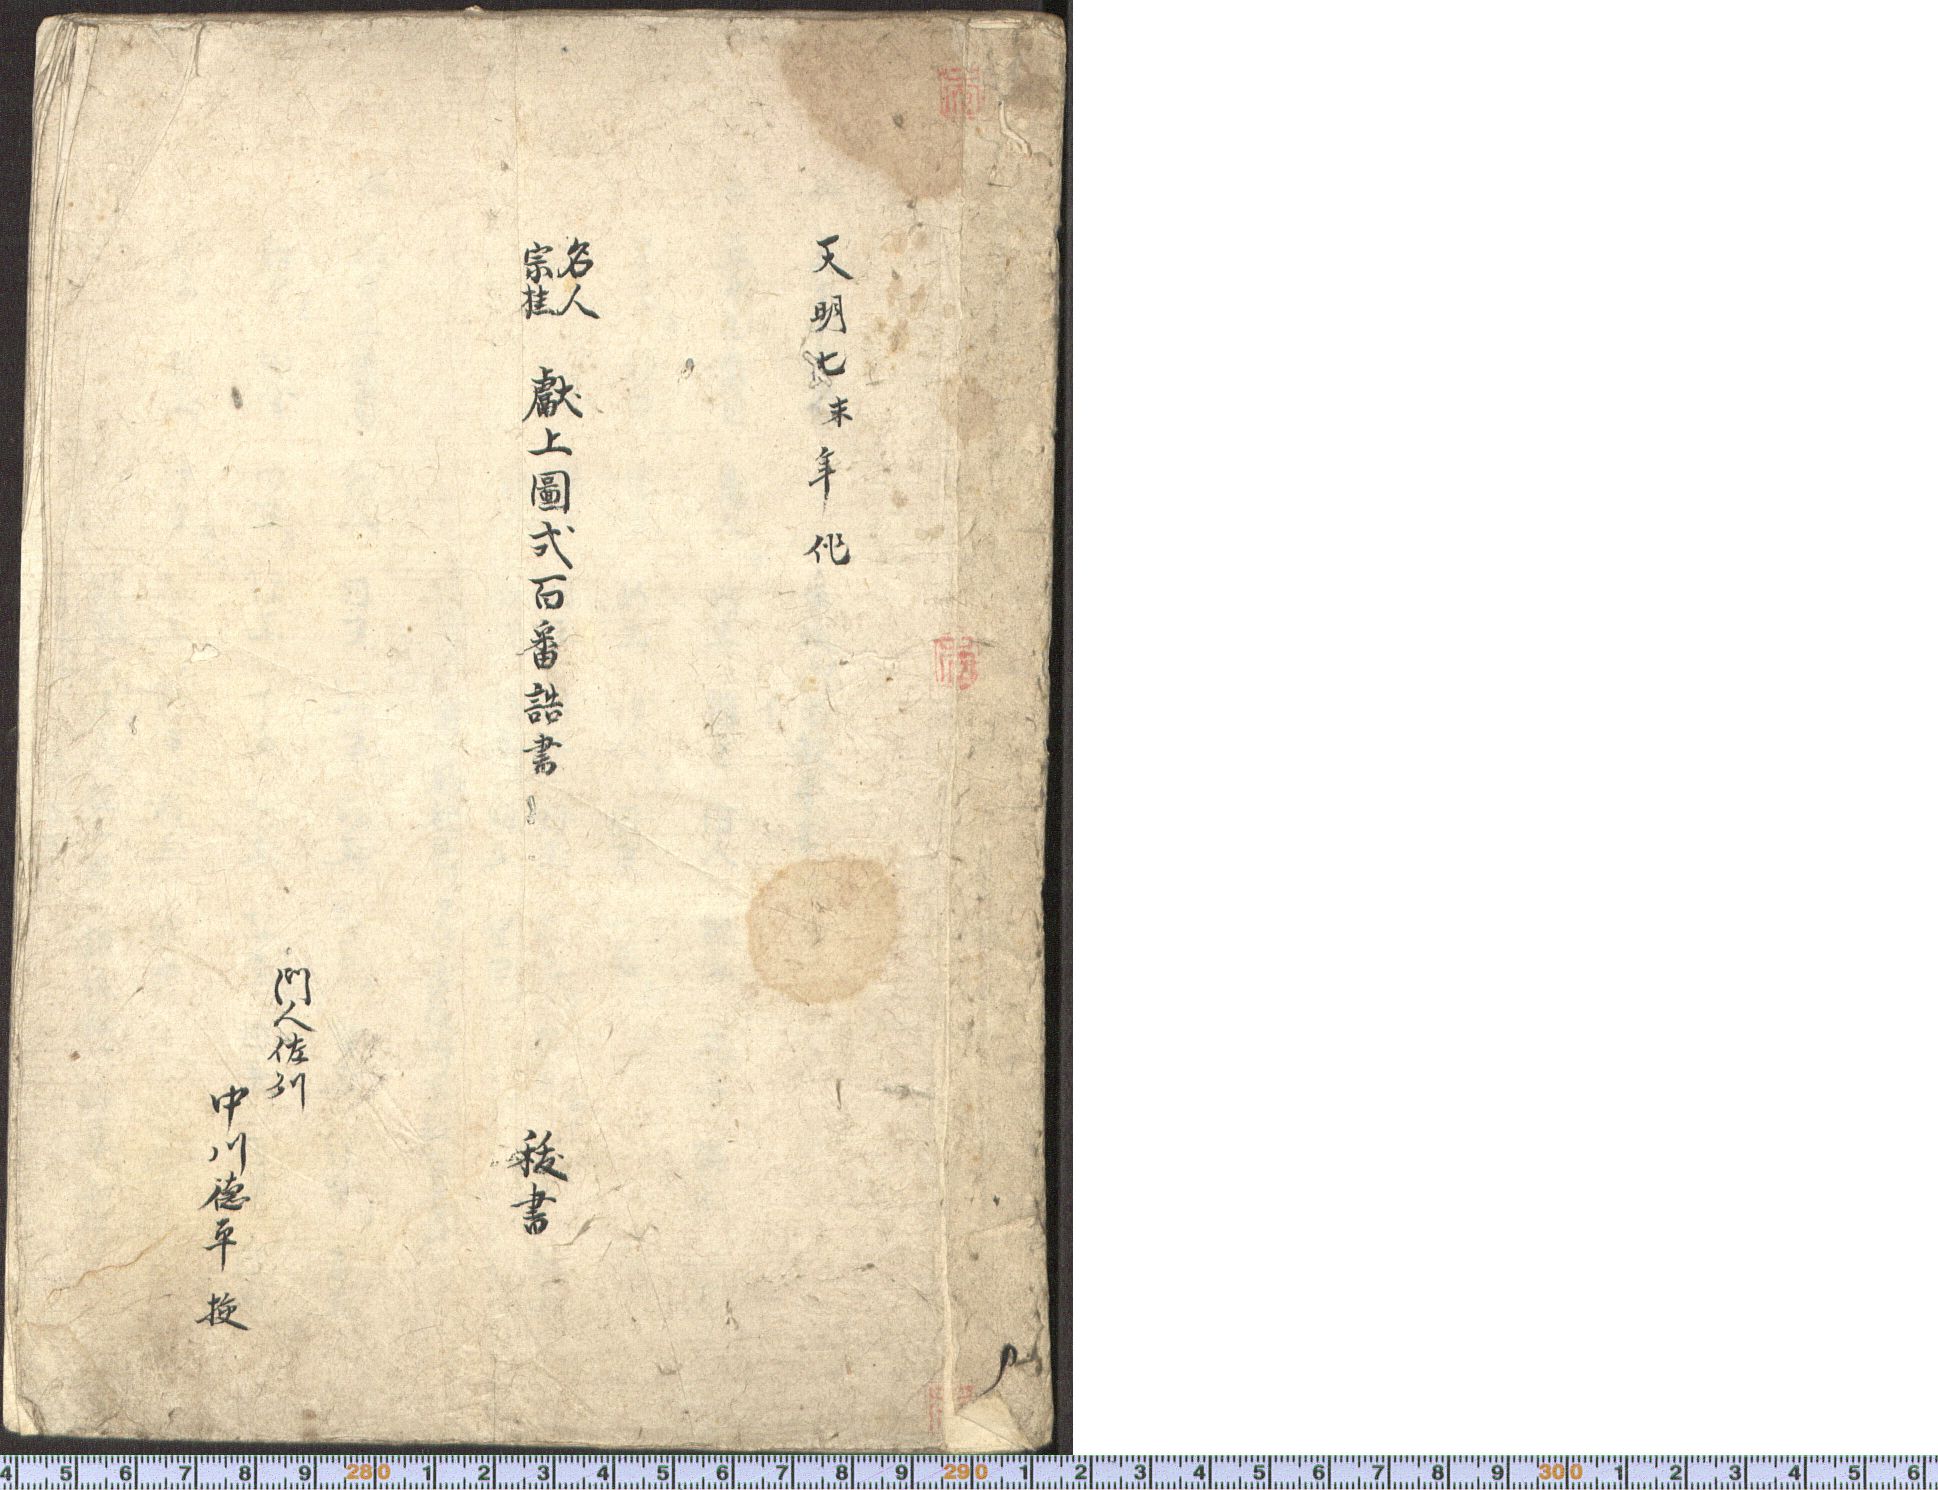 天明七未年作
名人
宗桂
獻上圖式百番詰書
秘書
門人佐刕
中川徳平
4 5 6 7 8 9 280 1 2 3 4 5 6 7 8 9 290 1 2 3 4 5 6 7 8 9 300 1 2 3 4 5 6